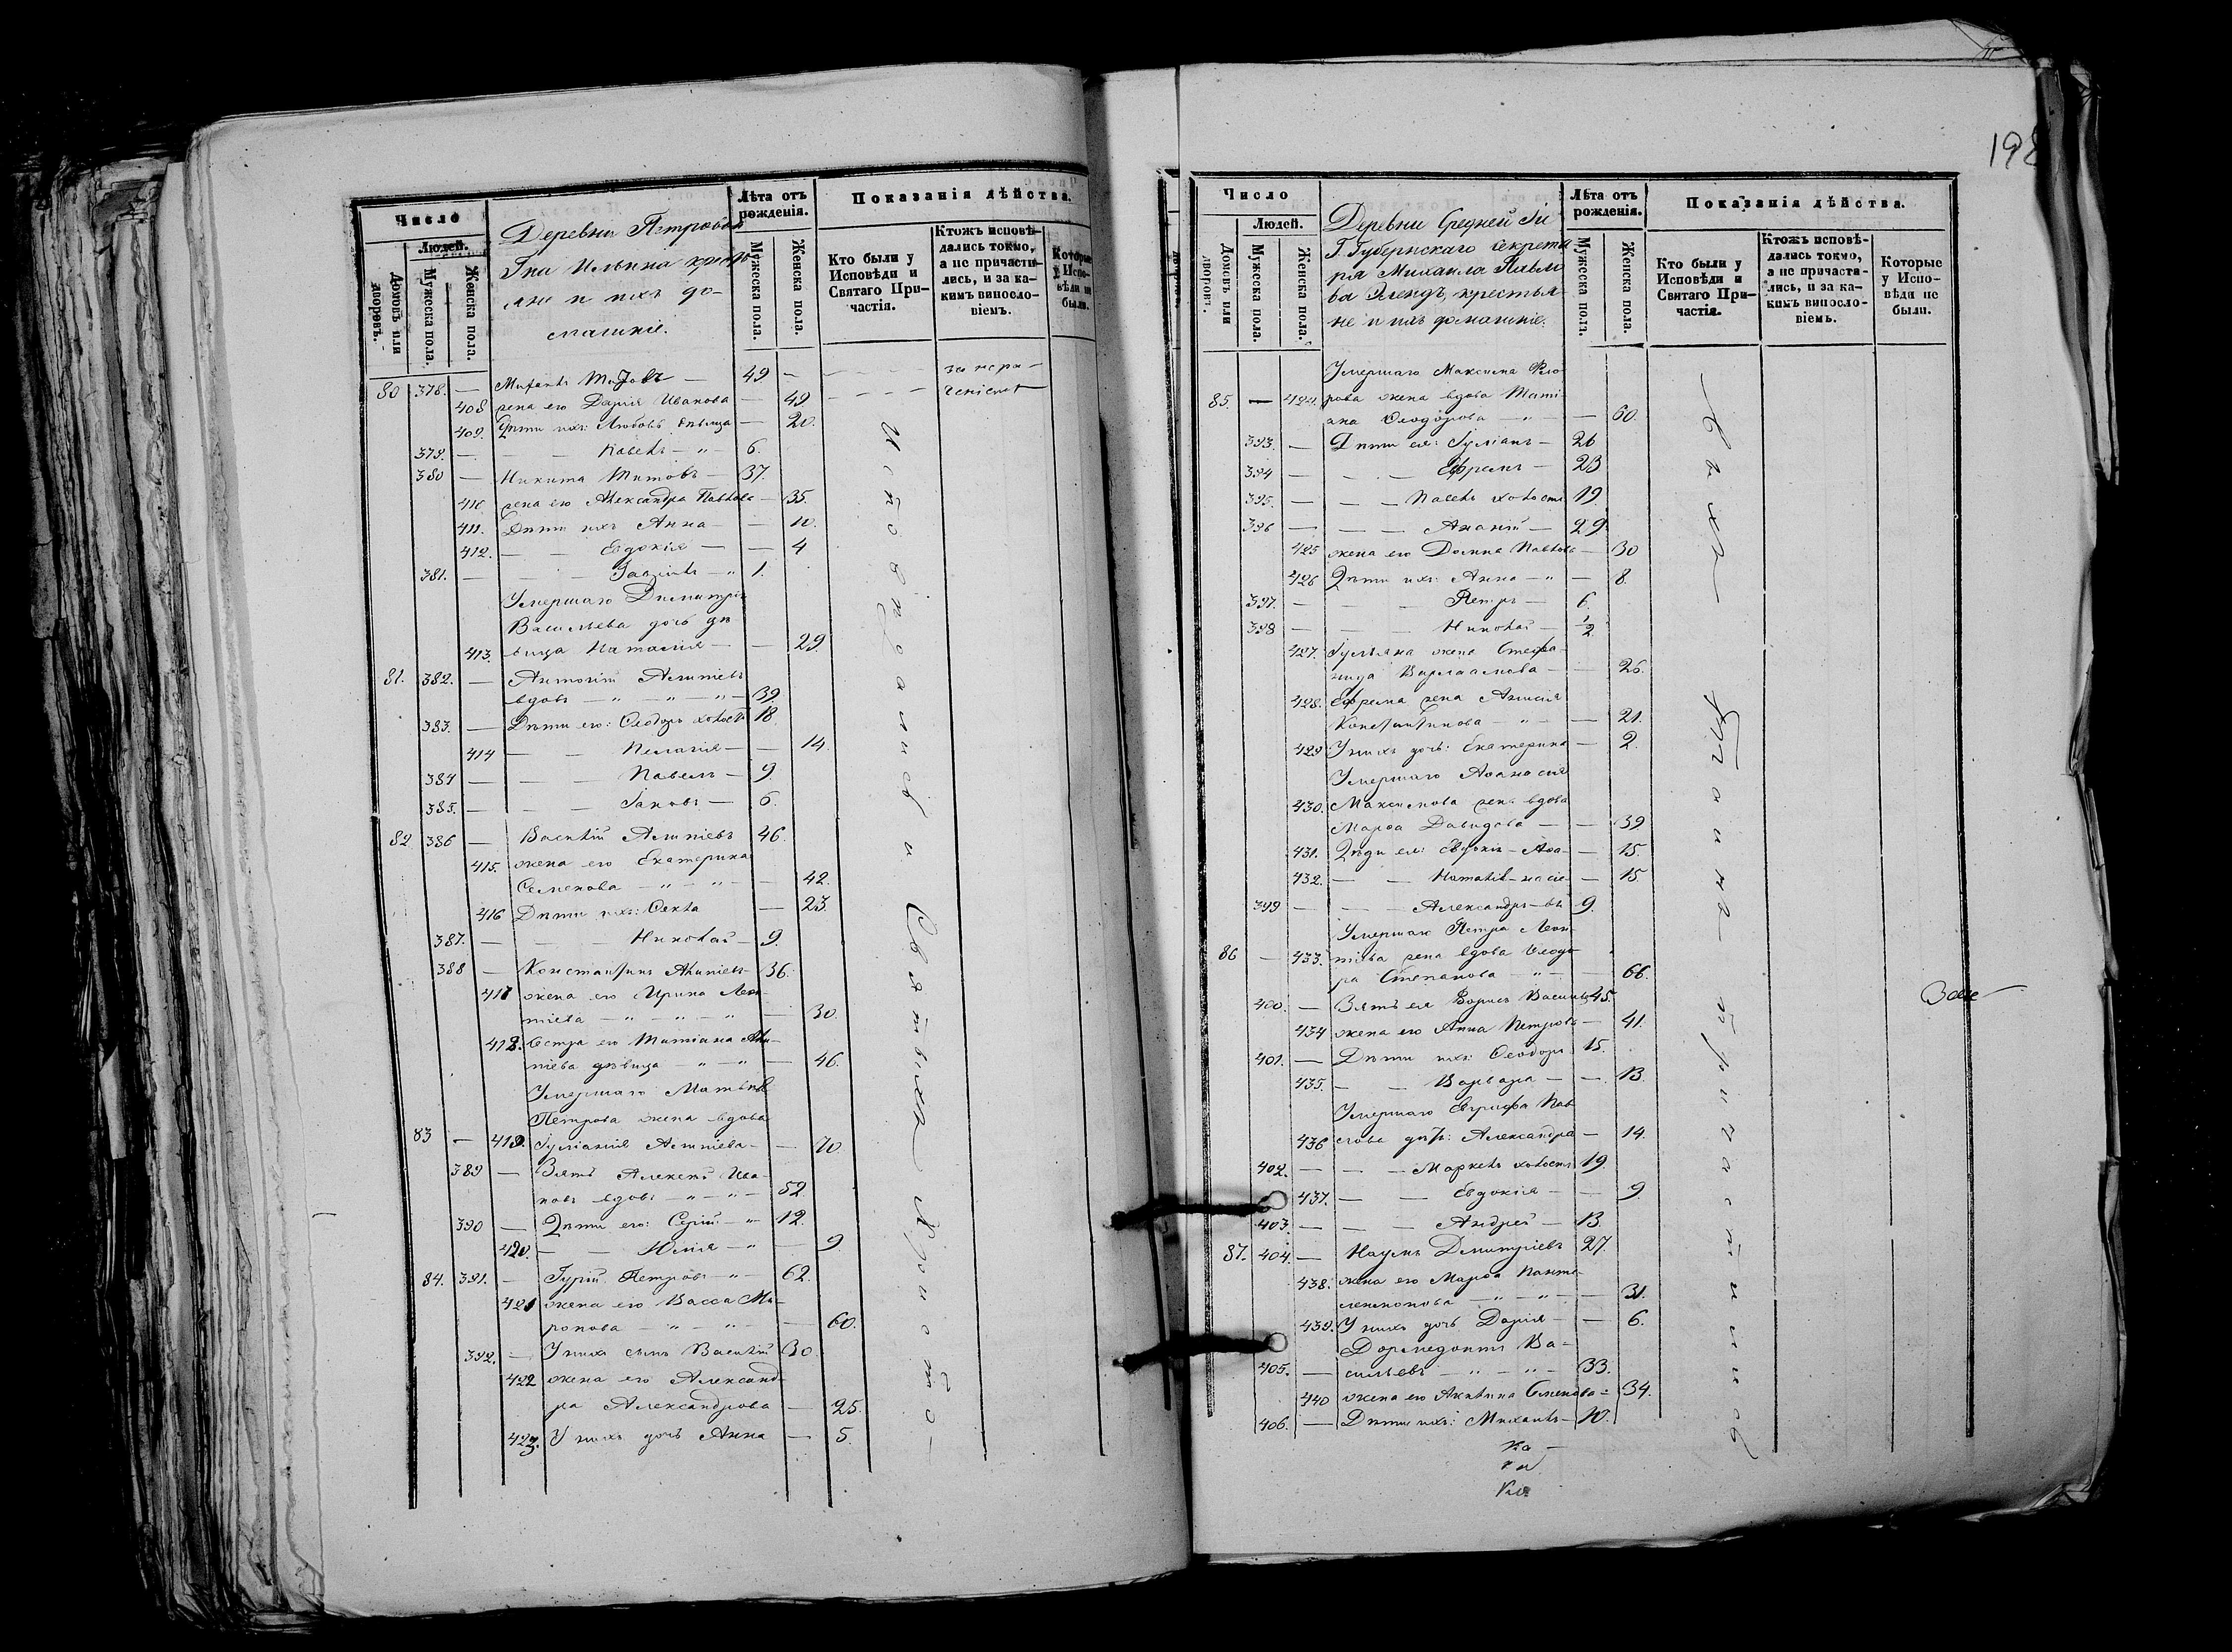 Число
Людей.
Домовъ или дворовъ.
Мужеска пола.
Женска пола.
Деревни Петровой
Гна Ильина кресть
яне и ихъ до-
машніе.
Лѣта отъ рожденія.
Мужеска пола.
Женска пола.
Показанія дѣйства.
Кто были у Исповѣди и Святаго Причастія.
Ктожъ исповѣдались токмо, а не причастились, и за какимъ винословіемъ.
Которые у Исповѣди не были.
80 378. — Михаилъ Титовъ — 49 —
408 жена его Дарія Иванова — 49
409. Дѣти ихъ: Любовь дѣвица — 20.
379. — — Павелъ — " — 6.
380 — Никита Титовъ — 37.
410 жена его Александра Павлова — 35.
411. Дѣти ихъ Анна — — 10.
412. — — Евдокія — — 4
381. — — Гавріилъ — " 1.
Умершаго Димитрія
Васильева дочь дѣ
413. вица Наталія — — 29.
81. 382. — Антоній Алипіевъ
вдовъ — " — " — " — 39.
383. — Дѣти его: Ѳеодоръ холостъ 18.
414 — — Пелагія — — 14.
384 — — — Павелъ — 9.
385. — — — Іаковъ — 6.
82 386 — Василій Алипіевъ 46.
415. жена его Екатерина
Семенова — " — " — — 42.
416 Дѣти ихъ: Ѳекла — 23.
387. — — — Николай — 9.
388 — Константинъ Алипіевъ — 36.
417 жена его Ирина Леон-
тіева — " — " — " — 30.
418. Сестра его Татіана Али-
піева дѣвица — " — " — 46.
Умершаго Матвѣя
Петрова жена вдова
83 — 419. Іуліанія Алипіева — — 70
389 — Зять Алексѣй Ива-
новъ вдовъ — " — " — 52.
390 — Дѣти его: Сергій — " — 12.
420. — — Юлія — " — — 9
84. 391. — Гурій Петровъ — " — 62.
421 жена его Васса Ми-
ронова — " — " — — 60.
392. — У нихъ сынъ Василій 30.
422 жена его Александ-
ра Александрова — 25.
423. У нихъ дочь Анна — 5.
Исповѣдались и Святыхъ Христо-
198
Число
Людей.
Домовъ или дворовъ.
Мужеска пола.
Женска пола.
Деревни Средней
Г. Губернскаго Секрета
ря Михаила Павло
ва крестья-
не и ихъ домашніе.
Лѣта отъ рожденія.
Мужеска пола.
Женска пола.
Показанія дѣйства.
Кто были у Исповѣди и Святаго Причастія.
Ктожъ исповѣдались токмо, а не причастились, и за какимъ винословіемъ.
Которые у Исповѣди не были.
Умершаго Максима Фло
85. — 424. рова жена вдова Тати
ана Ѳеодорова — " — — 60.
393. — Дѣти ея: Іуліанъ — 26
394 — — — Ефремъ — 23
395. — — — Павелъ холостъ 19.
396 — — — Ананій — 29.
425 жена его Домна Павлова — 30
426 Дѣти ихъ: Анна — " — — 8.
397. — — — Петръ — 6.
398 — — — Николай — ½
427. Іуліана жена Стефа-
нида Варлаамова — — 26.
428. Ефрема жена Анисія
Константинова — " — — 21.
429 У нихъ дочь: Екатерина — 2.
Умершаго Аѳанасія
430. Максимова жена вдова
Марѳа Давидова — — 39
431. Дѣти ея: Евдокія — Аѳа — 15.
432. — — Наталія — насіе — 15
399 — — — Александръ — вы 9.
Умершаго Петра Леон
86 — 433. тіева жена вдова Ѳеодо
ра Степанова — " — — 66.
400. — Зять ея Борисъ Васильевъ 45.
434 жена его Анна Петрова — 41.
401. — Дѣти ихъ: Ѳеодоръ 15.
435. — — Варвара — — 13.
Умершаго Евграфа Пав
436 лова дѣти: Александра — 14.
402. — — — Маркелъ холостъ 19.
437. — — Евдокія — — 9.
403. — — — Андрей — 13.
87. 404. — Наумъ Димитріевъ 27.
438. жена его Марѳа Панте-
леимонова — " — " — — 31.
439. У нихъ дочь Дарія — — 6.
Дормедонтъ Ва-
405. — сильевъ — " — " — 33.
440 жена его Акилина Семенова — 34.
406. — Дѣти ихъ: Михаилъ — 10.
выхъ Таинъ причастились